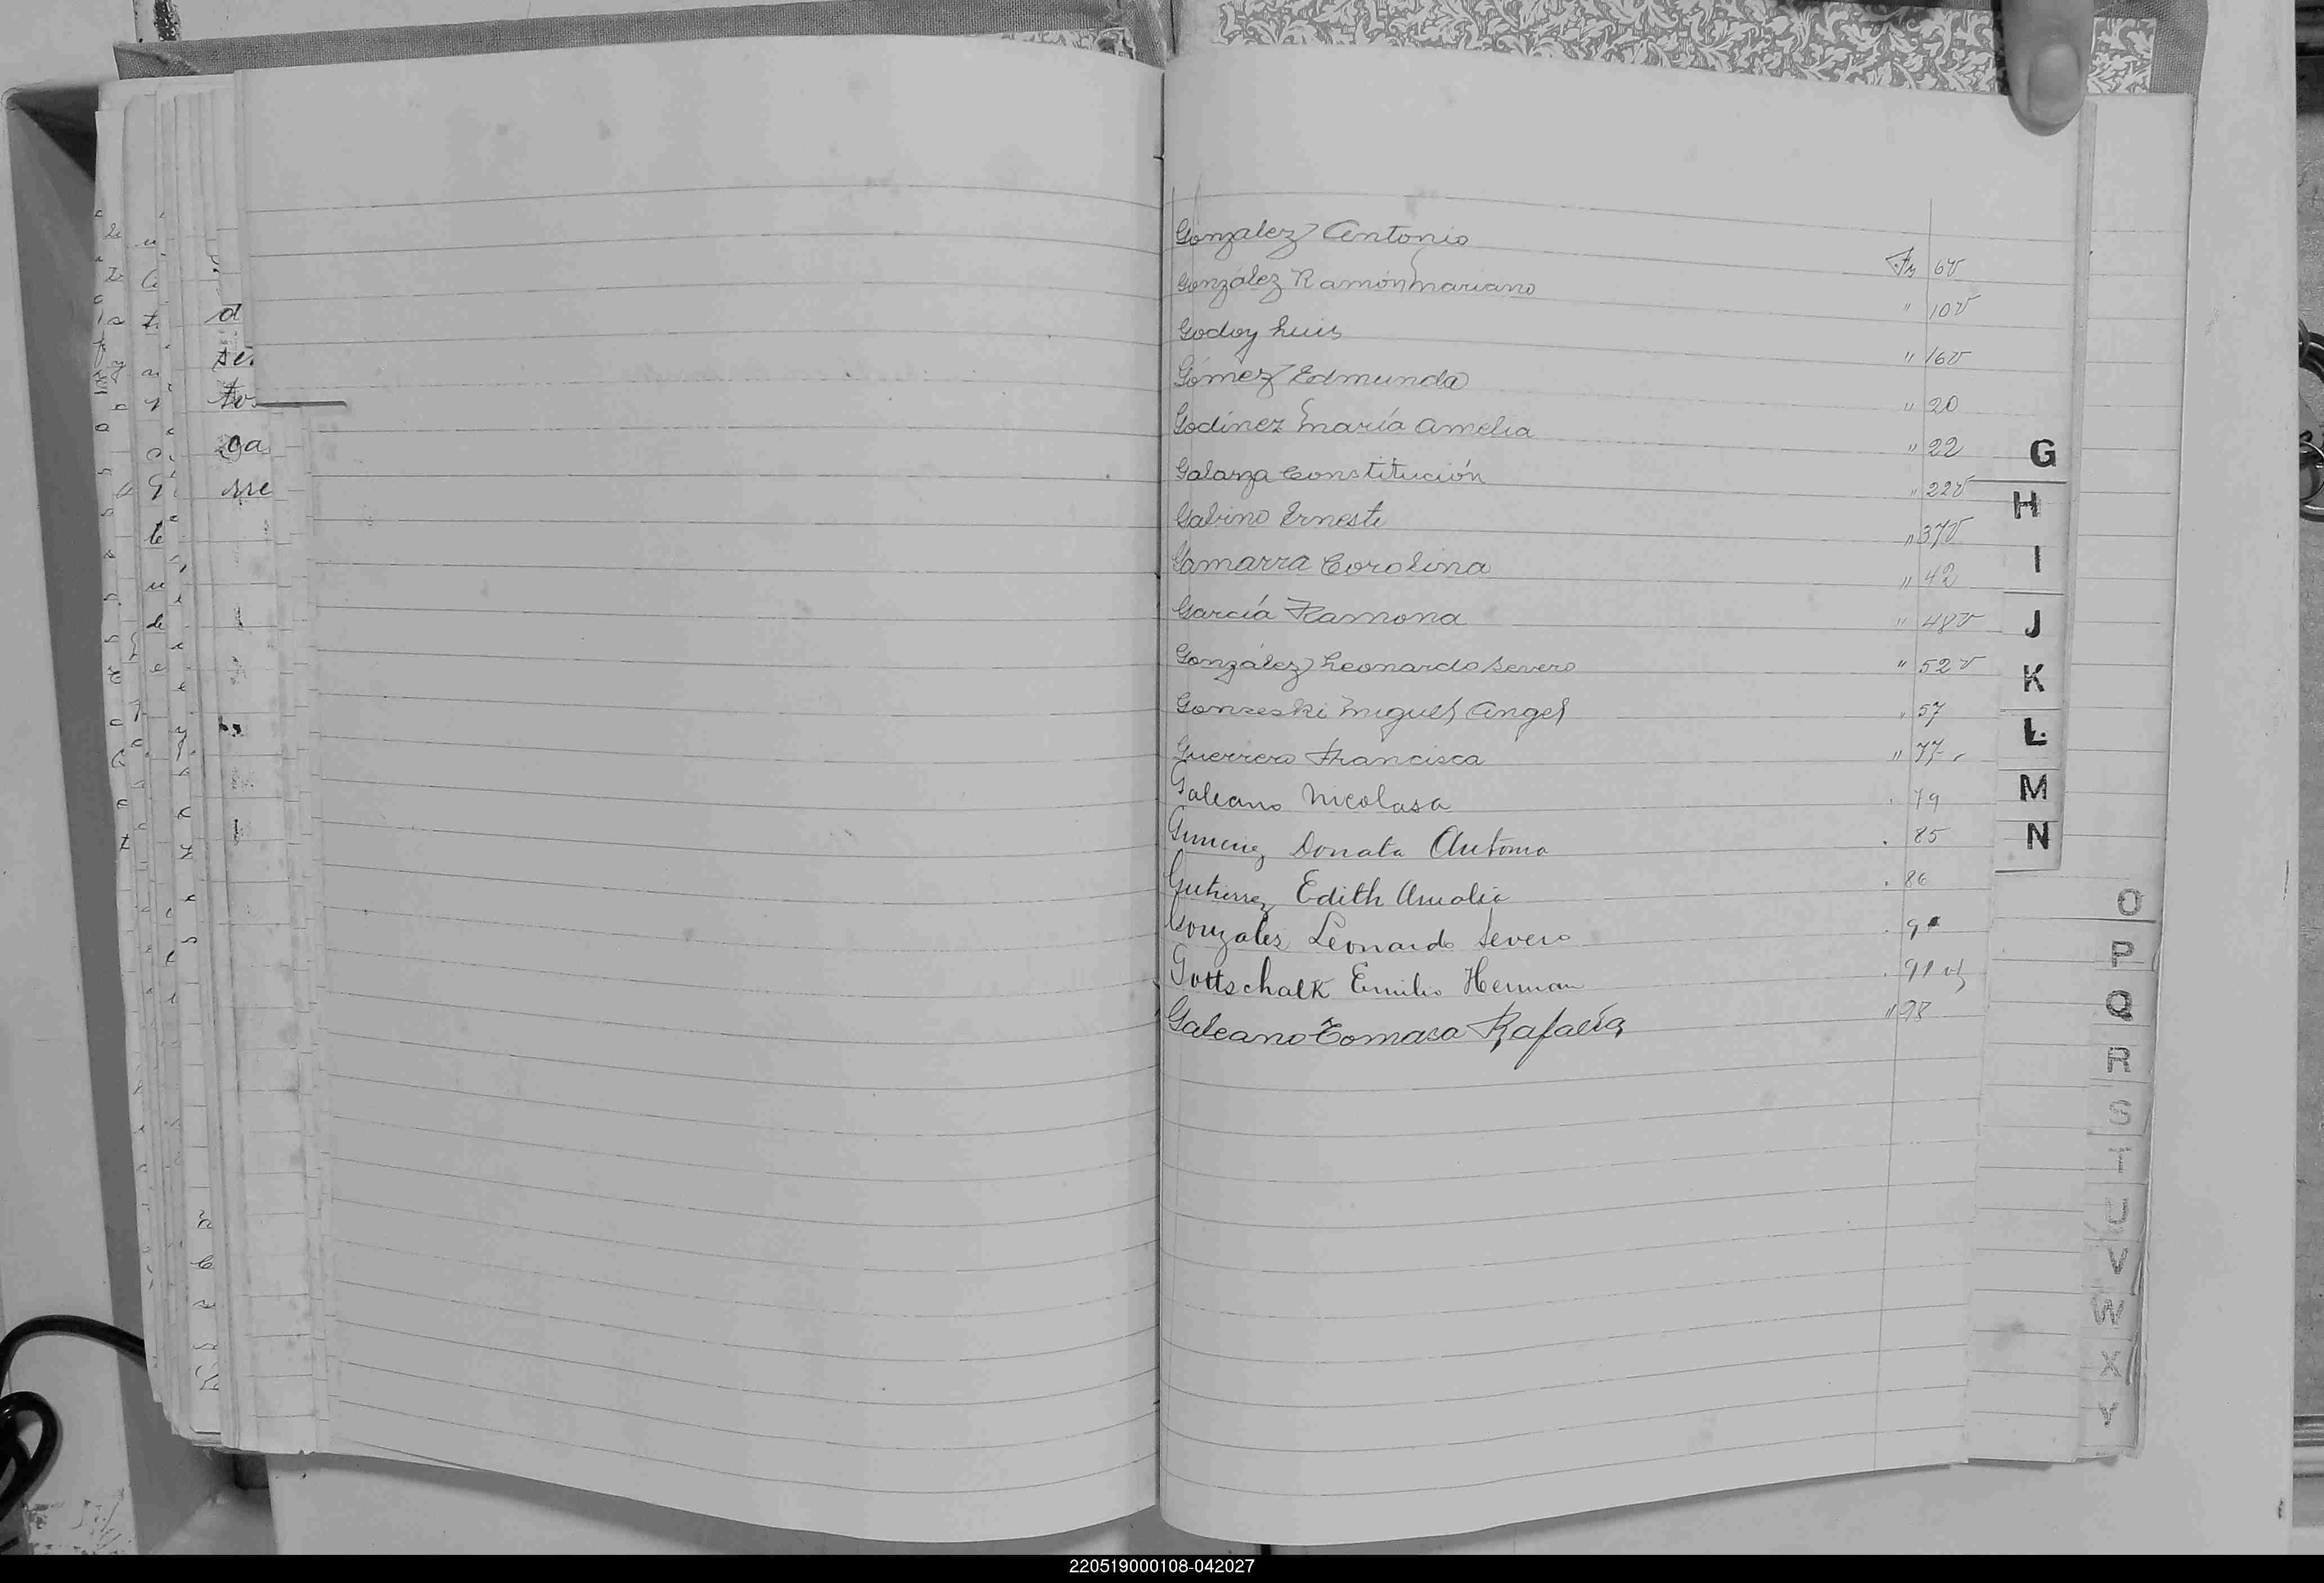 Gonzalez Antonio Fs 6v
González Ramón Mariano " 10v
Godoy Luis " 16v
Gómez Edmunda " 20
Godinez María Amelia " 22
Galarza Constitución " 22v
Gabino Ernesto " 37v
Gamarra Carolina " 42
García Ramona " 48v
González Leonardo Severo " 52v
Gonseski Miguel Angel " 57
Guerrero Francisca " 77
Galeano Nicolasa . 79
Gimenez Donata Antonia . 85
Gutierrez Edith Amalia . 86
Gonzalez Leonardo Severo . 9
Gottschalk Emilio Herman . 91 v
Galeano Tomasa Rafaela " 98
G
H
I
J
K
L
M
N
O
P
Q
R
S
T
U
V
W
X
Y
220519000108-042027